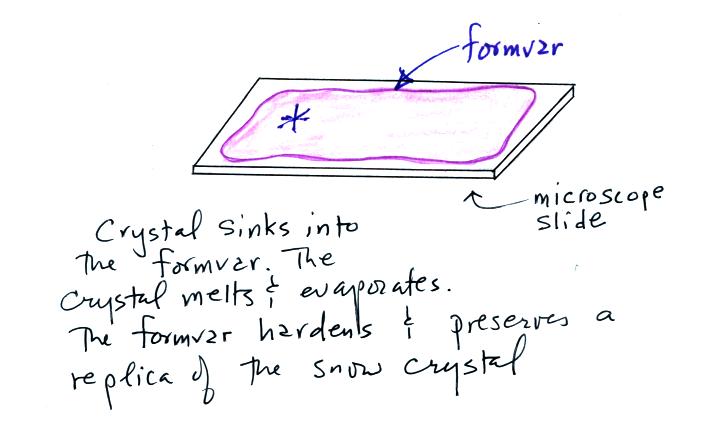 formvar
microscope
slide
Crystal sinks into
the formvar. The
crystal melts & evaporates.
The formvar hardens & preserves a
replica of the snow crystal